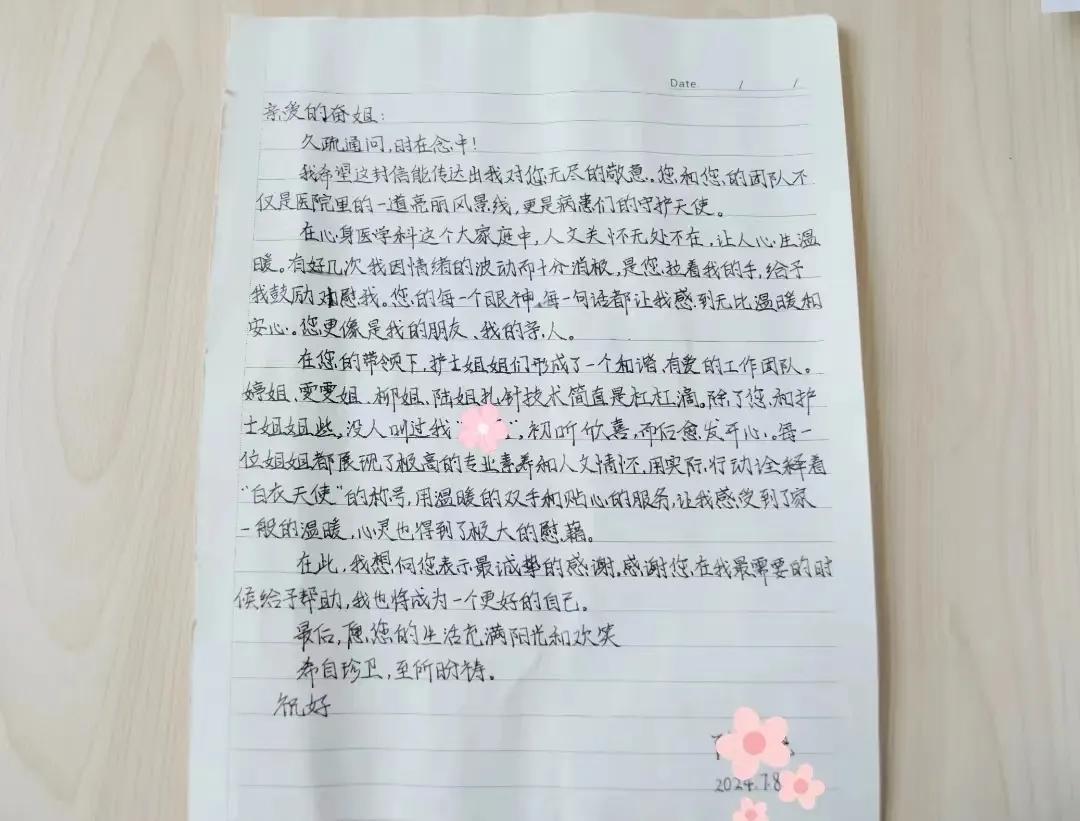 Date / /
亲爱的奋姐:
久疏通问,时在念中!
我希望这封信能传达出我对您无尽的敬意。您和您的团队不
仅是医院里的一道亮丽风景线,更是病患们的守护天使。
在心身医学科这个大家庭中,人文关怀无处不在,让人心生温
暖。有好几次我因情绪的波动而十分消极,是您拉着我的手,给予
我鼓励 慰我。您的每一个眼神,每一句话都让我感到无比温暖和
安心。您更像是我的朋友、我的亲人。
在您的带领下,护士姐姐们形成了一个和谐、有爱的工作团队。
婷姐、雯雯姐、柳姐、陆姐扎针技术简直是杠杠滴。除了您和护
士姐姐些,没人叫过我“ ”,初听欣喜,而后愈发开心。每一
位姐姐都展现了极高的专业素养和人文情怀,用实际行动诠释着
“白衣天使”的称号,用温暖的双手和贴心的服务,让我感受到了家
一般的温暖,心灵也得到了极大的慰藉。
在此,我想向您表示最诚挚的感谢。感谢您在我最需要的时
候给予帮助,我也将成为一个更好的自己。
最后,愿您的生活充满阳光和欢笑
希自珍卫,至所盼祷。
祝好
2024.7.8